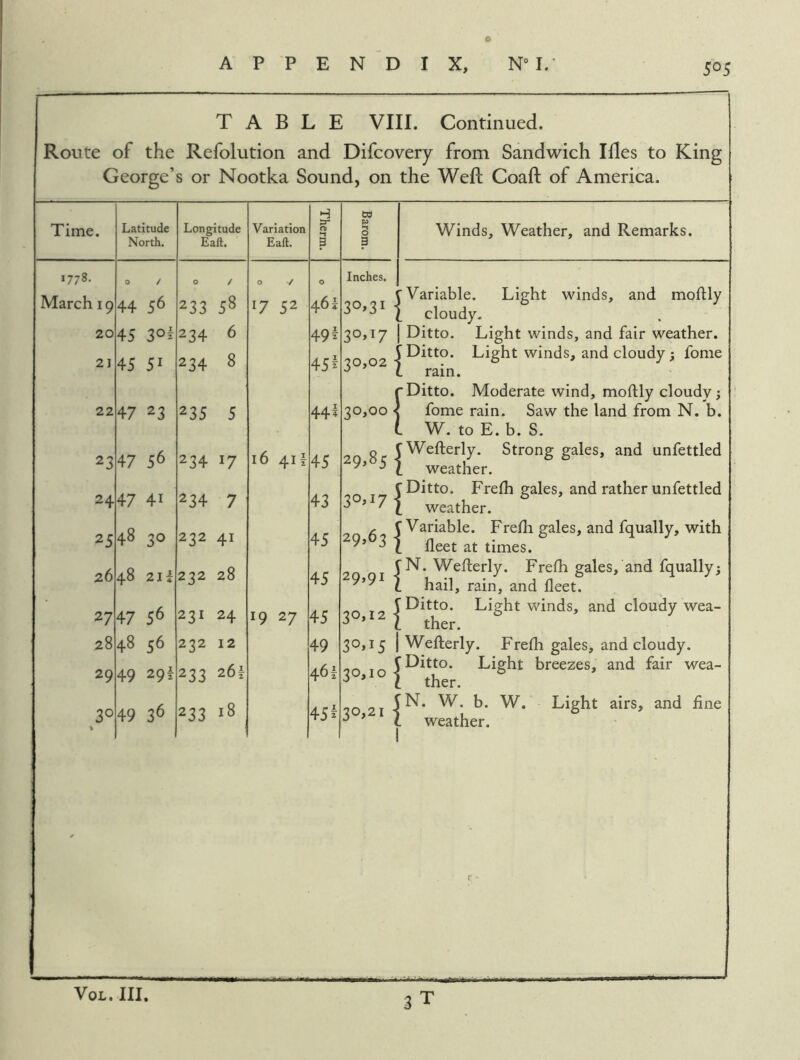 APPENDIX, N° I. 505
TABLE VIII. Continued.
Route of the Reſolution and Diſcovery from Sandwich Iſles to King
George's or Nootka Sound, on the Weſt Coaſt of America.
Time. Latitude North. Longitude Eaſt. Variation Eaſt. Therm. Barom. Winds, Weather, and Remarks.
1778. o / o / o / o Inches.
March 19 44 56 233 58 17 52 46½ 30,31 { Variable. Light winds, and moſtly
cloudy.
20 45 30½ 234 6 49½ 30,17 | Ditto. Light winds, and fair weather.
21 45 51 234 8 45½ 30,02 { Ditto. Light winds, and cloudy; ſome
rain.
22 47 23 235 5 44½ 30,00 { Ditto. Moderate wind, moſtly cloudy;
ſome rain. Saw the land from N. b.
W. to E. b. S.
23 47 56 234 17 16 41½ 45 29,85 { Weſterly. Strong gales, and unſettled
weather.
24 47 41 234 7 43 30,17 { Ditto. Freſh gales, and rather unſettled
weather.
25 48 30 232 41 45 29,63 { Variable. Freſh gales, and ſqually, with
ſleet at times.
26 48 21¼ 232 28 45 29,91 { N. Weſterly. Freſh gales, and ſqually;
hail, rain, and ſleet.
27 47 56 231 24 19 27 45 30,12 { Ditto. Light winds, and cloudy wea-
ther.
28 48 56 232 12 49 30,15 | Weſterly. Freſh gales, and cloudy.
29 49 29½ 233 26½ 46½ 30,10 { Ditto. Light breezes, and fair wea-
ther.
30 49 36 233 18 45½ 30,21 { N. W. b. W. Light airs, and fine
weather.
VOL. III. 3 T